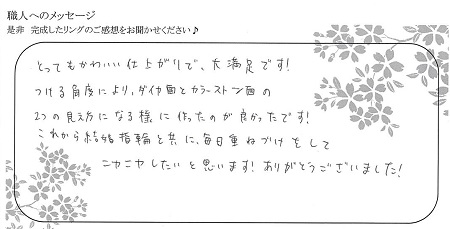 職人へのメッセージ
是非 完成したリングのご感想をお聞かせください♪
とってもかわいい仕上がりで、大満足です!
つける角度により、ダイヤ面とカラーストーン面の
2つの見え方になる様に作ったのが良かったです!
これから結婚指輪と共に、毎日重ねづけをして
ニヤニヤしたいと思います!ありがとうございました!